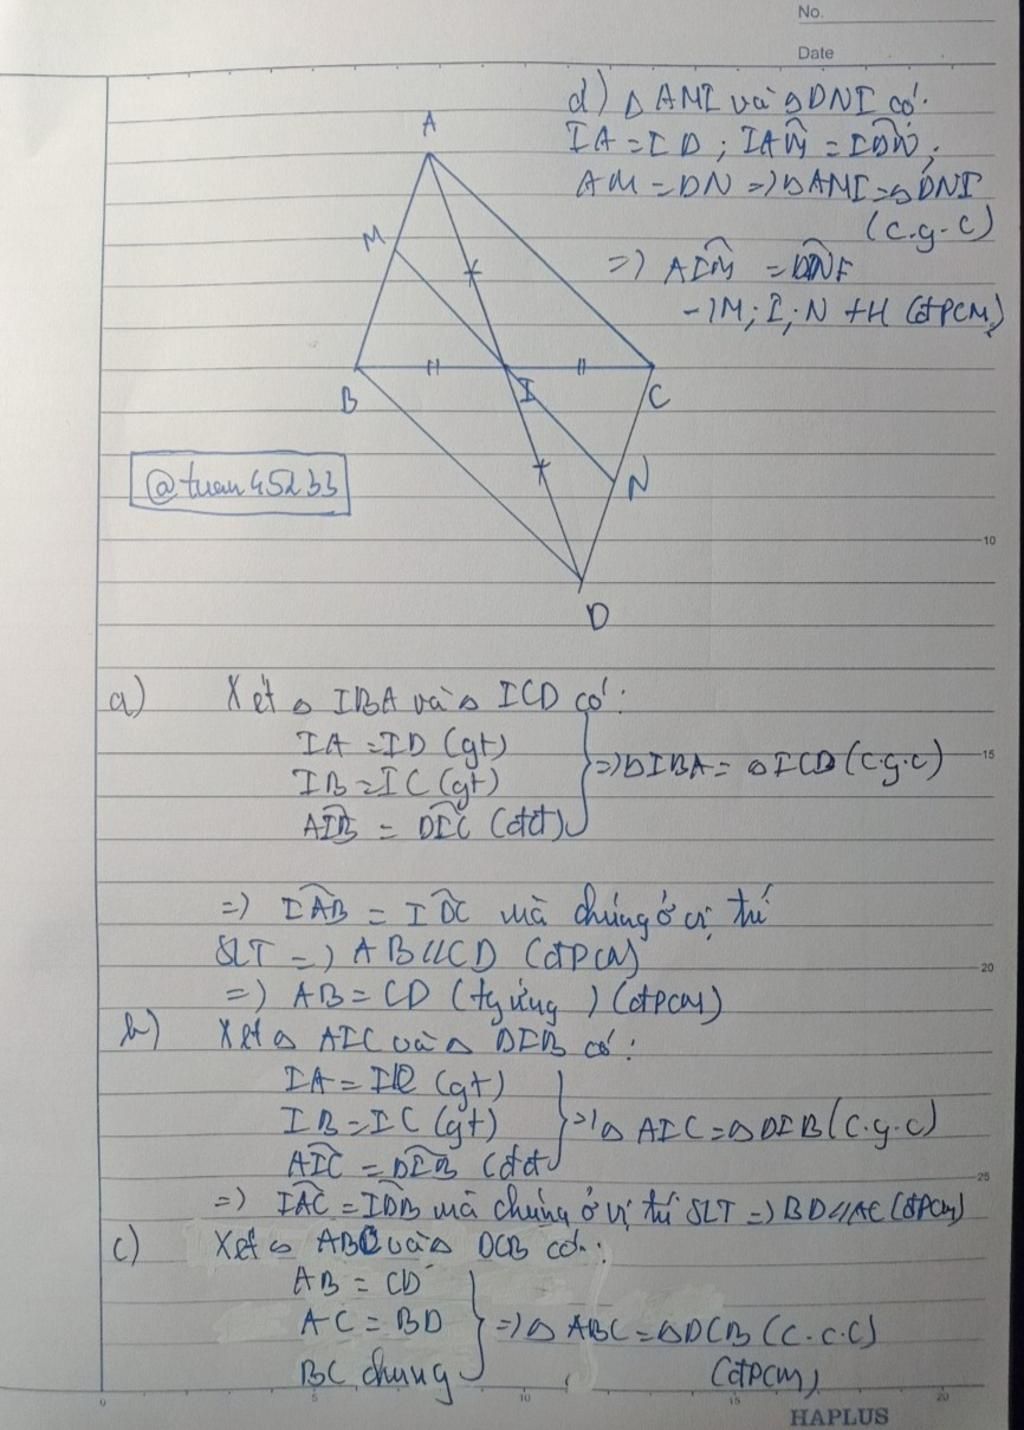 No.
Date
d) Δ AMI và Δ DNI có:
IA = ID ; IAM = IDN ;
AM = DN => Δ AMI = Δ DNI
(c.g.c)
=> AIM =
-) M ; I ; N tH (đPCM)
A
M
B
I
C
N
D
@tuan45233
10
a) Xét Δ IBA và Δ ICD có:
IA = ID (gt)
IB = IC (gt)
AIB = DIC (đđ)
=> Δ IBA = Δ ICD (c.g.c)
15
=> IAB = IDC mà chúng ở vị trí
SLT => AB // CD (đPCM)
20
=> AB = CD (tg ứng) (đPCM)
b) Xét Δ AIC và Δ DIB có:
IA = ID (gt)
IB = IC (gt)
AIC = DIB (đđ)
=> Δ AIC = Δ DIB (c.g.c)
25
=> IAC = IDB mà chúng ở vị trí SLT => BD // AC (đPCM)
c) Xét Δ ABC và Δ DCB có:
AB = CD
AC = BD
BC chung
=> Δ ABC = Δ DCB (c.c.c)
(đPCM)
0 5 10 15 20
HAPLUS